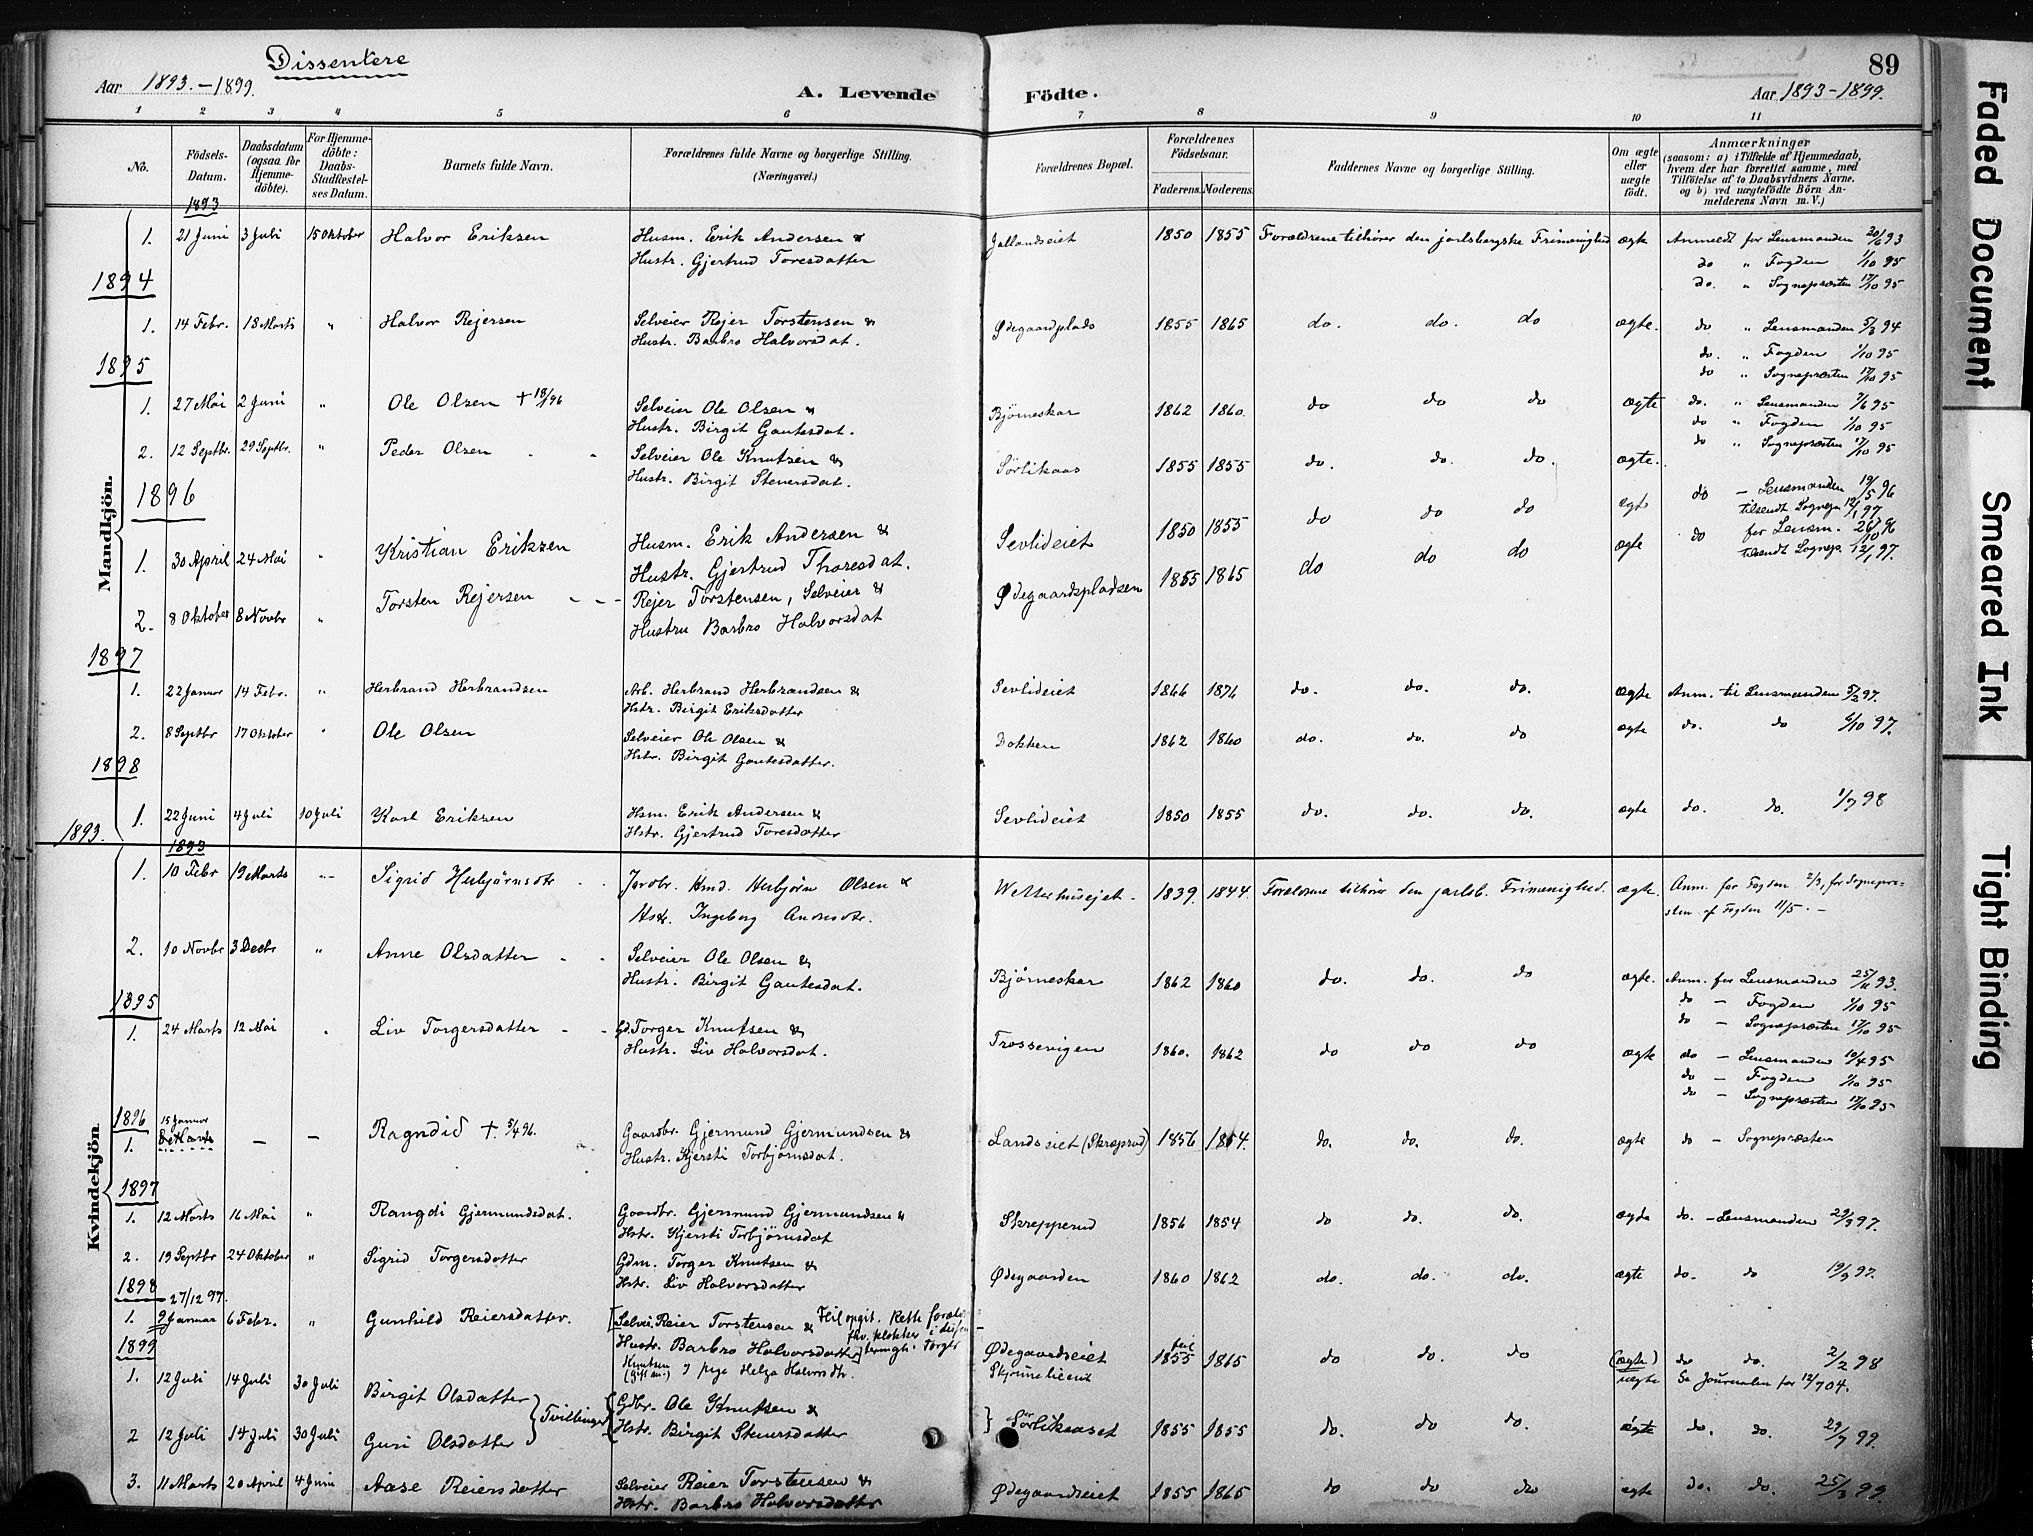 Dissentere
Aar 1893.-1899.
A. Levende Födte.
Aar 1893-1899.
89
1 2 3 4 5 6 7 8 9 10 11
No.
Födsels-Datum.
Daabsdatum (ogsaa for Hjemmedöbte).
For Hjemmedöbte: Daabs-Stadfæstelses Datum.
Barnets fulde Navn.
Forældrenes fulde Navne og borgerlige Stilling. (Næringsvei.)
Forældrenes Bopæl.
Forældrenes Födselsaar.
Faderens. Moderens.
Faddernes Navne og borgerlige Stilling.
Om ægte eller uægte födt.
Anmærkninger
(saasom: a) i Tilfælde af Hjemmedaab, hvem der har forrettet samme, med Tilföielse af to Daabsvidners Navne. og b) ved uægtefödte Börn Anmelderens Navn m. V.)
Mandkjön.
1893
1. 21 Juni 3 Juli 15 Oktober Halvor Eriksen Husm. Erik Andersen & Jallandseiet 1850 1855 Forældrene tilhører den jarlsbergske Frimenighed ægte Anmeldt for Lensmanden 20/6 93
Hustr. Gjertrud Toresdatter do " Fogden 1/10 95
1894 do. " Sognepræsten 17/10 95
1. 14 Febr. 18 Marts " Halvor Rejersen Selveier Rejer Torstensen & Ødegaardplads 1855 1865 do. do. do ægte. do " Lensmanden 5/3 94
Hustr. Barbro Halvorsdat. do. " Fogden 1/10 95
1895 do " Sognepræsten 17/10 95
1. 27 Mai 2 Juni " Ole Olsen + 18/96 Selveier Ole Olsen & Bjørneskar 1862 1860. do do do ægte do. " Lensmanden 7/6 95
Hustr. Birgit Gautesdat. do " Fogden 1/10 95
2. 12 Septbr. 29 Septbr. " Peder Olsen Selveier Ole Knutsen & Sörlikaas 1855 1855 do. do. do. ægte. do " Sognepræsten 17/10 95
Hustr. Birgit Stenersdat.
1896 do - Lensmanden 19/5 96
tilsendt Sognepr 12/1 97
1. 30 April 24 Mai " Kristian Eriksen Husm. Erik Andersen & Sevlideiet 1850 1855 do do do ægte do for Lensm. 26/10 96
Hustr. Gjertrud Thoresdat. tilsendt Sognepr. 12/1 97.
2. 8 Oktober 8 Novbr " Torsten Rejersen Rejer Torstensen, Selveier & Ødegaardspladsen 1855 1865 do do do ægte
Hustru Barbro Halvorsdat
1897
1. 22 Januar 14 Febr. " Herbrand Herbrandsen Arb. Herbrand Herbrandsen & Sevlideiet 1866 1871 do. do. do. ægte Anm. til Lensmanden 5/2 97.
Hstr. Birgit Eriksdatter
2. 8 Septbr 17 Oktober " Ole Olsen Selveier Ole Olsen & Dokken 1862 1860 do. do. do ægte do. do 6/10 97.
Hstr. Birgit Gautesdatter.
1898
1. 22 Juni 4 Juli 10 Juli Karl Eriksen Hsm. Erik Andersen & Sevlideiet 1850 1855 do. do. do. ægte do. do. 1/7 98
Hstr. Gjertrud Toresdatter
1893.
Kvindekjön.
1893
1. 10 Febr 19 Marts Sigrid Herbjørnsdtr Jordbr. Hmd. Herbjørn Olsen & Wetterhusejet 1839 1844. Forældrene tilhører den jarlsb. Frimenighed. ægte. Anm. for Fogden 2/3, for Sognepræ-
Hstr. Ingeborg Andersdtr. sten af Fogden 11/5. -
2. 10 Novbr 3 Decbr " Anne Olsdatter Selveier Ole Olsen & Bjørneskar 1862 1860 do. do. do ægte. Anm. for Lensmanden 25/11 93.
Hustr. Birgit Gautesdat. do - Fogden 1/10 95
1895 do - Sognepræsten 17/10 95
1. 24 Marts 12 Mai " Liv Torgersdatter Gd. Torger Knutsen & Trossevigen 1860. 1862 do do do ægte do - Lensmanden 10/4 95
Hustr. Liv Halvorsdat. do - Fogden 1/10 95
do - Sognepræsten 17/10 95
1896
1. 15 Januar — — Ragndid +. 5/4 96. Gaardbr. Gjermund Gjermundsen & Landseiet (Skreprud) 1856 1854. do. do. do. ægte do - Sognepræsten
Hustr. Kjersti Torbjørnsdat.
1897
1. 12 Marts 16 Mai " Rangdi Gjermundsdat. Gaardbr. Gjermund Gjermundsen & Skrepperud 1856 1854 do do. do. ægde do. - Lensmanden 29/3 97.
Hstr. Kjersti Torbjørnsdat
2. 19 Septbr 24 Oktober " Sigrid Torgersdatter Gdm. Torger Knutsen & Ødegaarden 1860 1862 do. do. do. ægte do. do 19/9 97.
Hstr. Liv Halvorsdatter
1898
27/12 97.
1. 9 Januar 6 Febr. " Gunhild Reiersdatter. [Selvei. Reier Torstensen & Ødegaardseiet 1855 1865 do do. do (ægte) do do. 2/2 98
Hustr. Barbro Halvorsdatter] Torger uægte Se Journalen for 12/7 04.
Knutsen (gift m.) & pige Helga Halvorsdtr.
1899
1. 12 Juli 14 Juli 30 Juli Birgit Olsdatter } Tvillinger { Gdbr. Ole Knutsen & } Sörlikaaset 1855 1855 do. do do. ægte do. do. 29/7 99.
2 12 Juli 14 Juli 30 Juli Guri Olsdatter Hstr. Birgit Stenersdatter
3. 11 Marts 20 April 4 Juni Aase Reiersdatter Selveier Reier Torstensen & Ødegaardseiet 1855 1865 do do do ægte do. do. 25/3 99.
Hstr. Barbro Halvorsdatter
Faded Document
Smeared Ink
Tight Binding